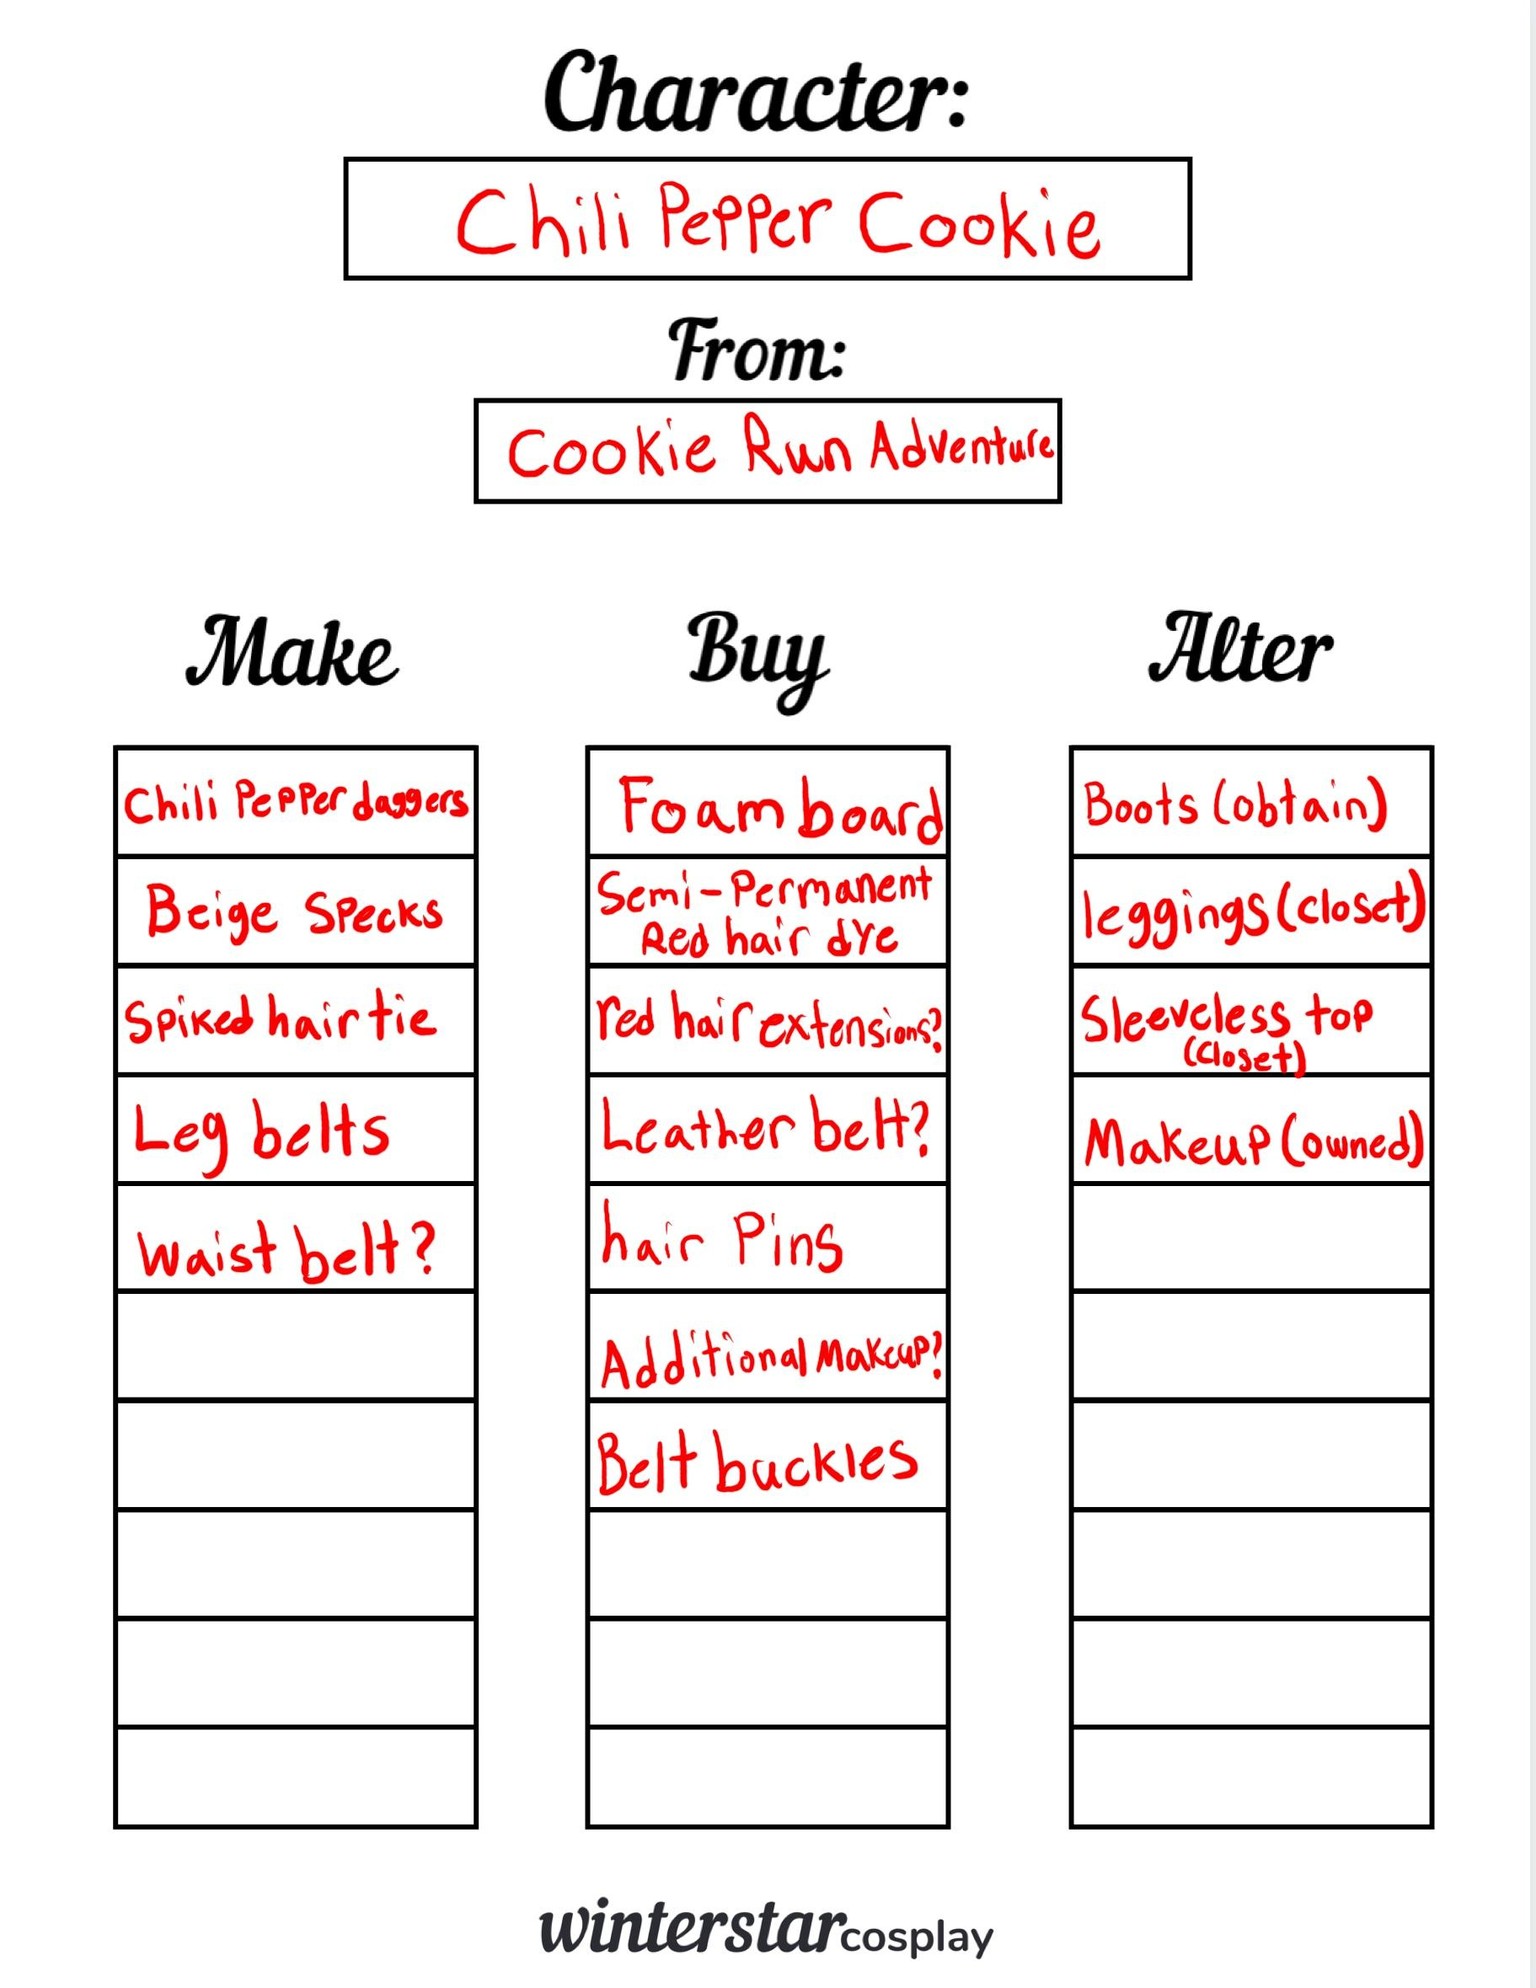 Character:
Chili Pepper Cookie
From:
Cookie Run Adventure
Make
Chili Pepper daggers
Beige specks
Spiked hair tie
Leg belts
Waist belt?
Buy
Foam board
Semi-Permanent
Red hair dye
red hair extensions?
Leather belt?
hair Pins
Additional Makeup?
Belt buckles
Alter
Boots (obtain)
leggings (closet)
Sleeveless top
(closet)
Makeup (owned)
winterstarcosplay